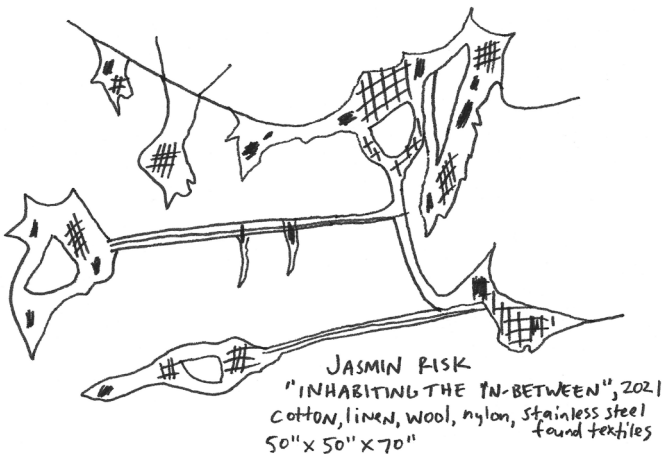 JASMIN RISK
"INHABITING THE IN-BETWEEN", 2021
Cotton, linen, wool, nylon, stainless steel
found textiles
50" x 50" x 70"